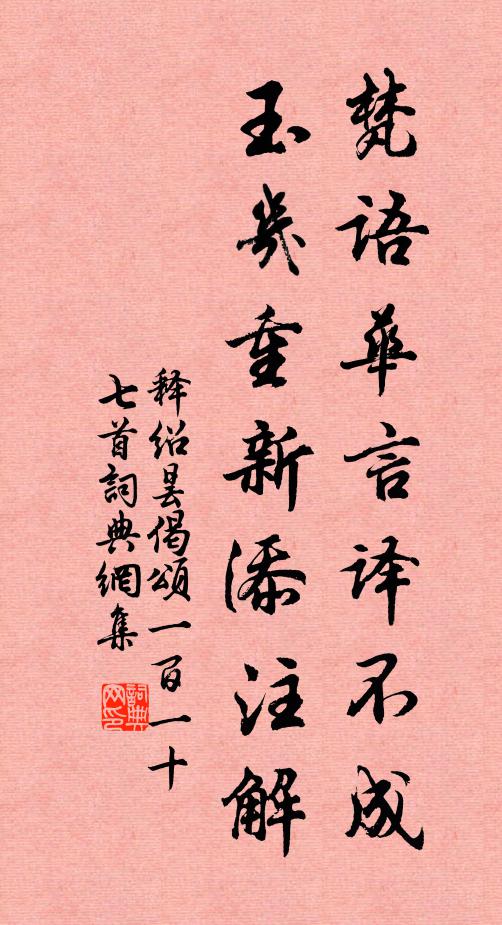 梵語華言译不成
玉幾重新添注解
释绍昙偈頌一百一十
七首詞典網集
詞典
网印